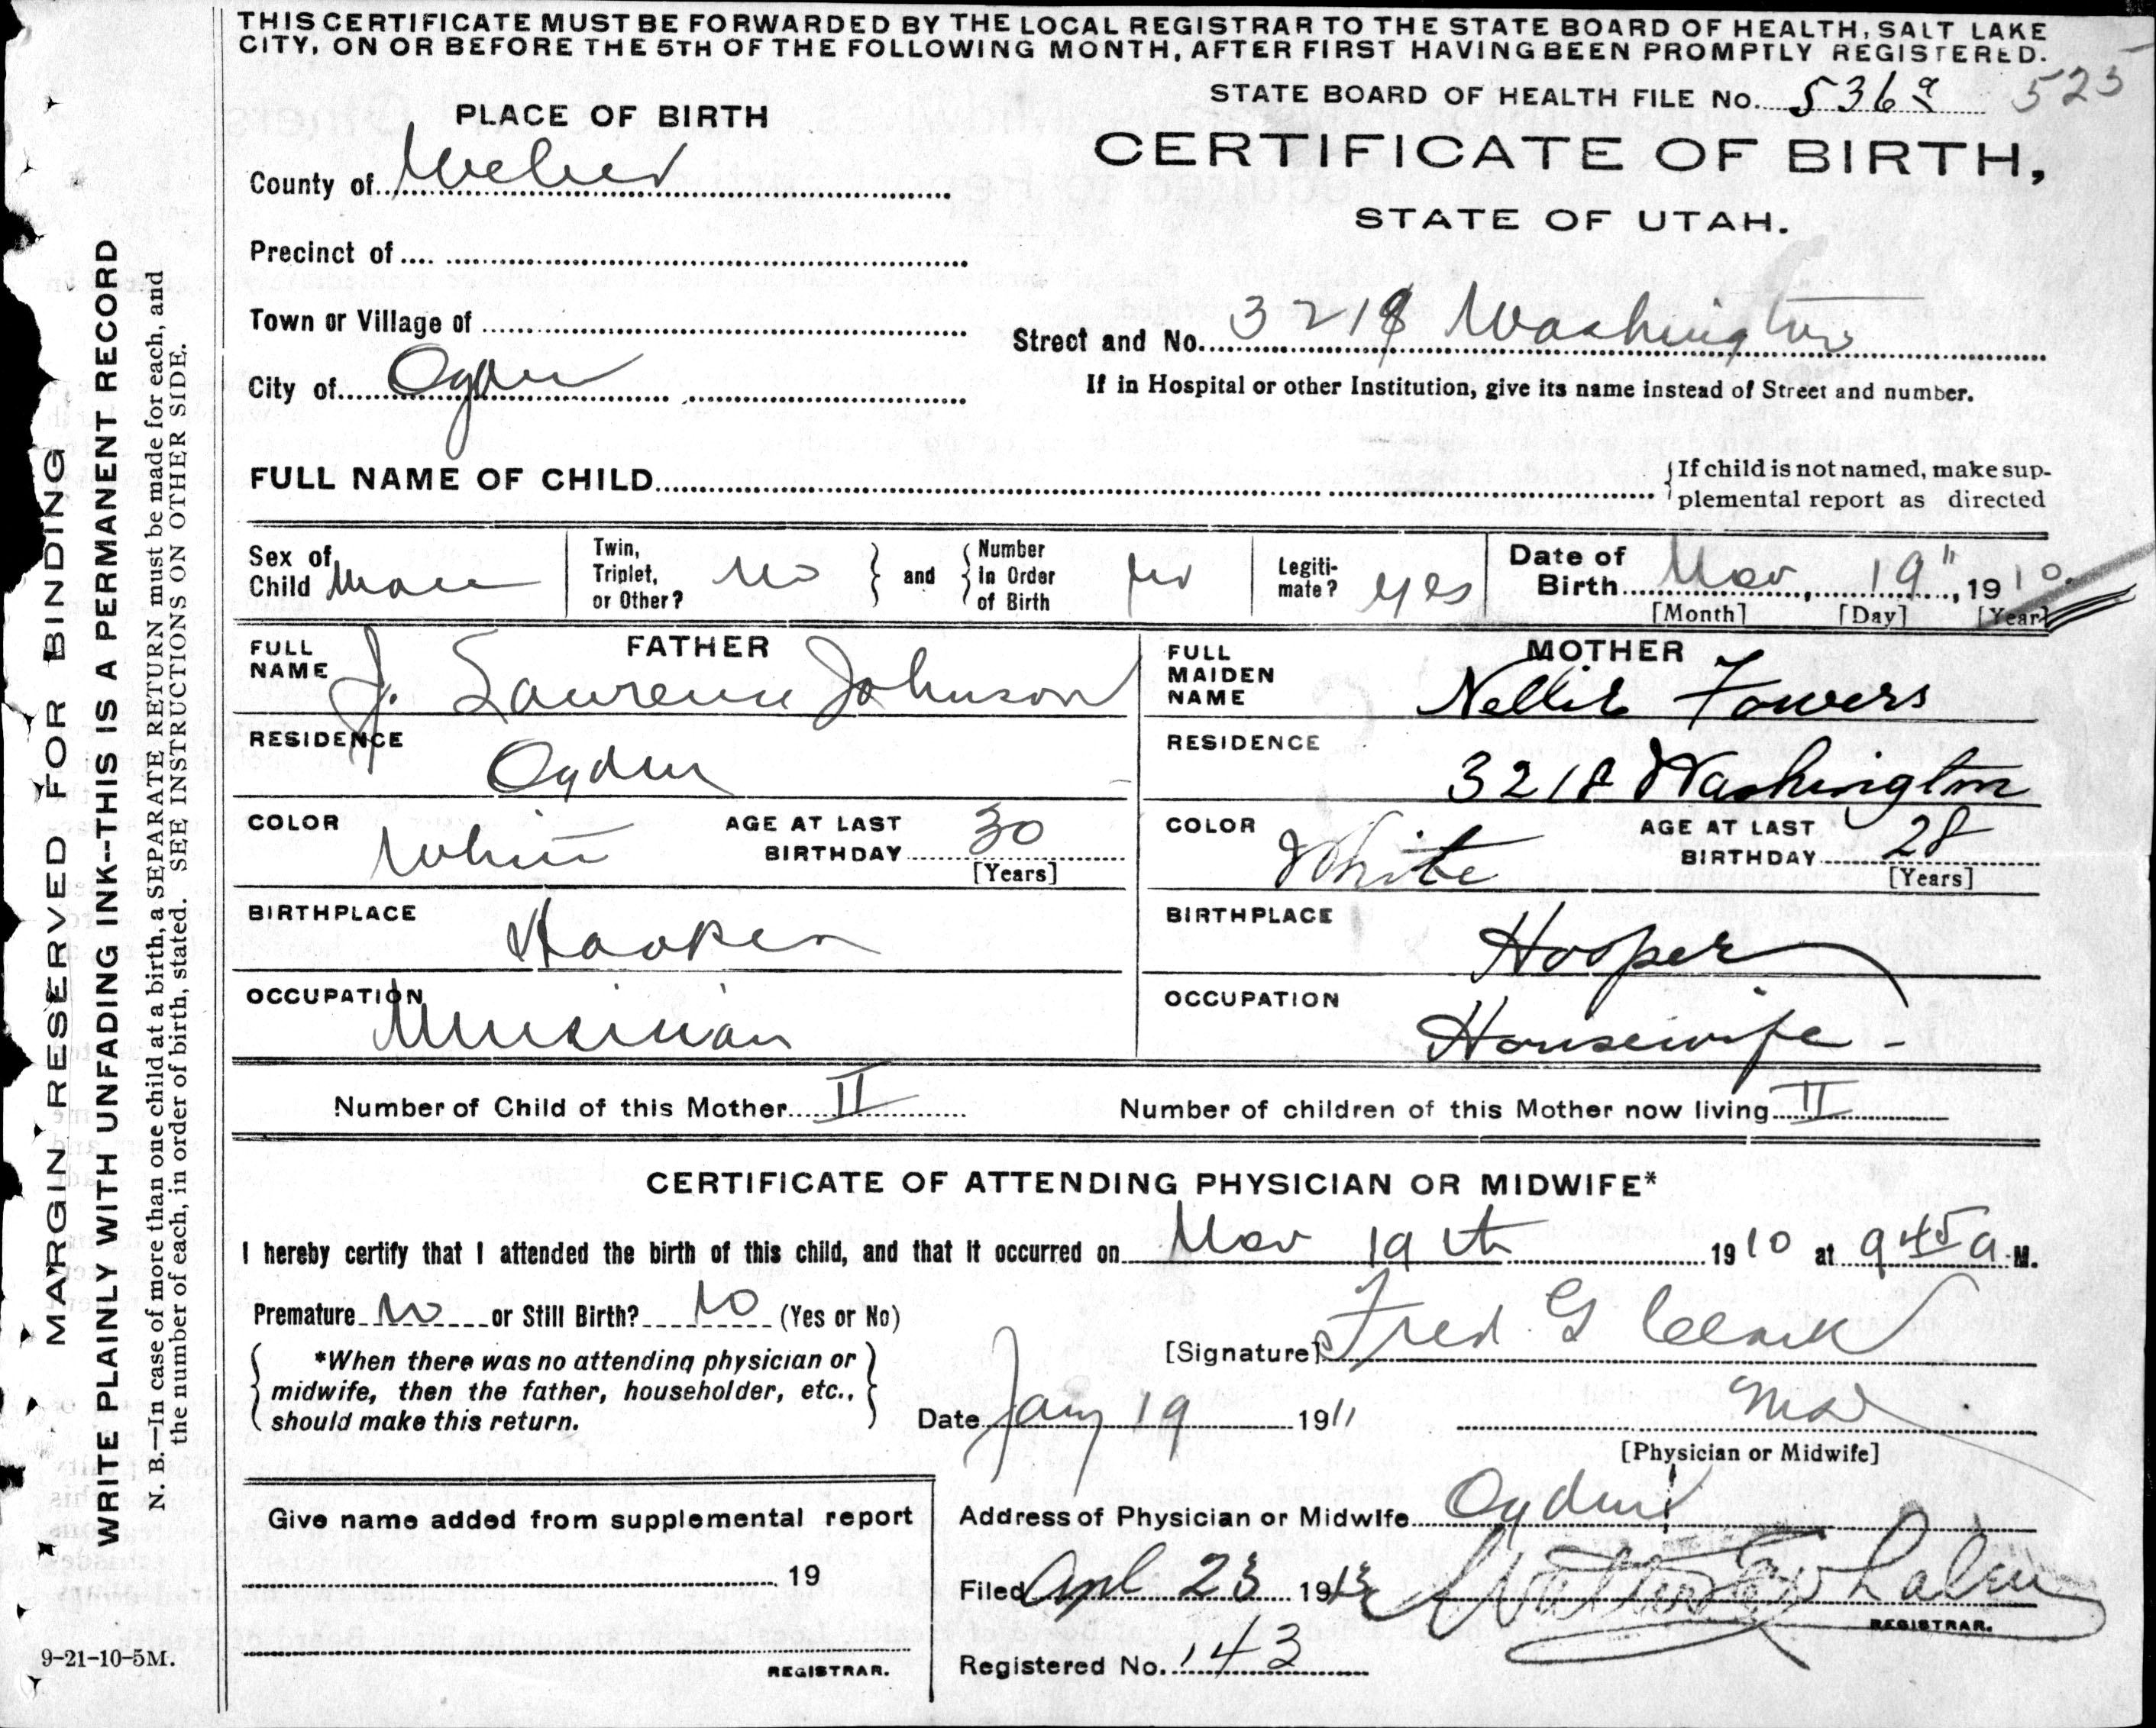 THIS CERTIFICATE MUST BE FORWARDED BY THE LOCAL REGISTRAR TO THE STATE BOARD OF HEALTH, SALT LAKE
CITY, ON OR BEFORE THE 5TH OF THE FOLLOWING MONTH, AFTER FIRST HAVING BEEN PROMPTLY REGISTERED.
STATE BOARD OF HEALTH FILE No. 536a 525
PLACE OF BIRTH
CERTIFICATE OF BIRTH,
STATE OF UTAH.
County of Weber
Precinct of
Town or Village of
Street and No. 3218 Washington
City of Ogden
If in Hospital or other Institution, give its name instead of Street and number.
FULL NAME OF CHILD
If child is not named, make sup-
plemental report as directed
Sex of Child Male
Twin, Triplet, or Other? No
and
Number in Order of Birth
Legiti-mate? yes
Date of Birth Nov 19", 1910.
[Month] [Day] [Year]
FATHER
FULL NAME J. Laurence Johnson
RESIDENCE Ogden
COLOR White
AGE AT LAST BIRTHDAY 30
[Years]
BIRTHPLACE Hooper
OCCUPATION Musician
MOTHER
FULL MAIDEN NAME Nellie Fowers
RESIDENCE 3218 Washington
COLOR White
AGE AT LAST BIRTHDAY 28
[Years]
BIRTHPLACE Hooper
OCCUPATION Housewife -
Number of Child of this Mother II
Number of children of this Mother now living II
CERTIFICATE OF ATTENDING PHYSICIAN OR MIDWIFE*
I hereby certify that I attended the birth of this child, and that it occurred on Nov 19th 1910 at 9 45 a M.
Premature No or Still Birth? No (Yes or No)
*When there was no attending physician or
midwife, then the father, householder, etc.,
should make this return.
[Signature] Fred G Clark
Date Jany 19 1911
MD
[Physician or Midwife]
Give name added from supplemental report
19
REGISTRAR.
Address of Physician or Midwife Ogden
Filed Apl 23 1913
REGISTRAR.
Registered No. 143
MARGIN RESERVED FOR BINDING
WRITE PLAINLY WITH UNFADING INK--THIS IS A PERMANENT RECORD
N. B.—In case of more than one child at a birth, a SEPARATE RETURN must be made for each, and
the number of each, in order of birth, stated. SEE INSTRUCTIONS ON OTHER SIDE.
9-21-10-5M.